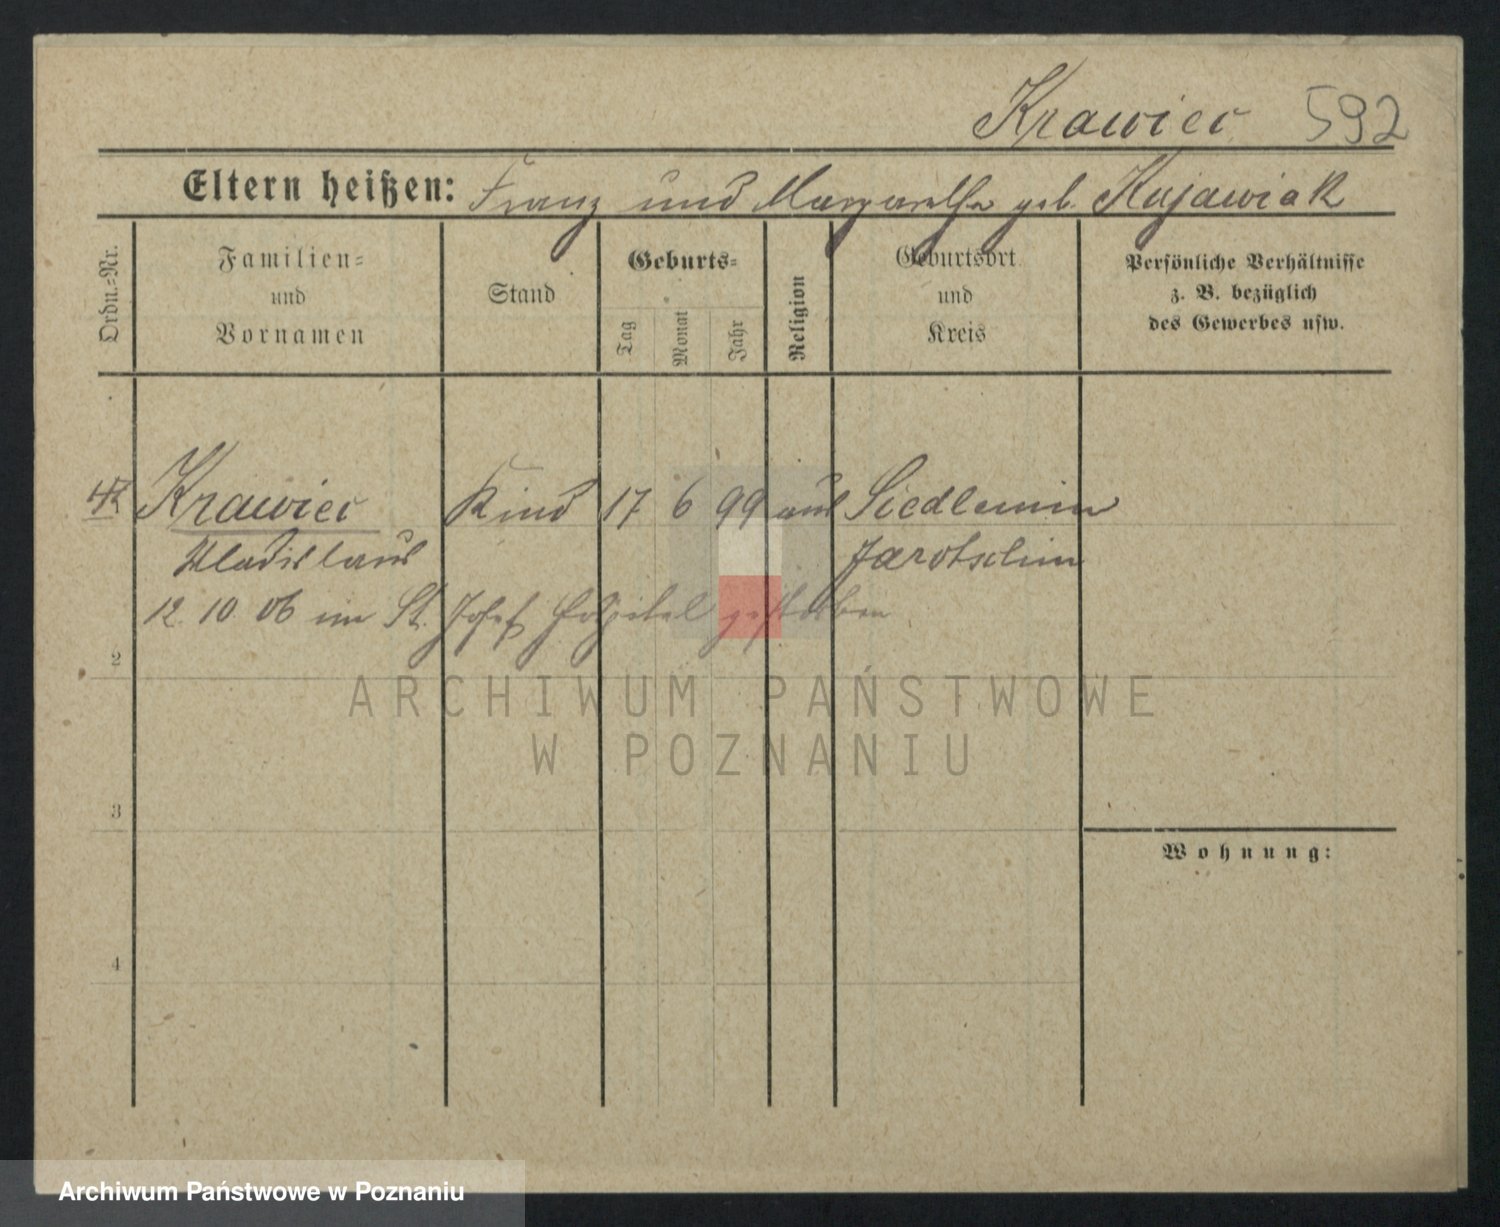 Krawiec 592
Eltern heißen: Franz und Margarethe geb. Kujawiak
Ordn.-Nr.
Familien-
und
Vornamen
Stand
Geburts-
Tag
Monat
Jahr
Religion
Geburtsort
und
Kreis
Persönliche Verhältnisse
z. B. bezüglich
des Gewerbes usw.
Krawiec Kind 17 6 99 aus Siedlemin
Wladislaus Jarotschin
12. 10. 06 im St. Josef Hospital gestorben
2
ARCHIWUM PAŃSTWOWE
W POZNANIU
3
Wohnung:
4
Archiwum Państwowe w Poznaniu